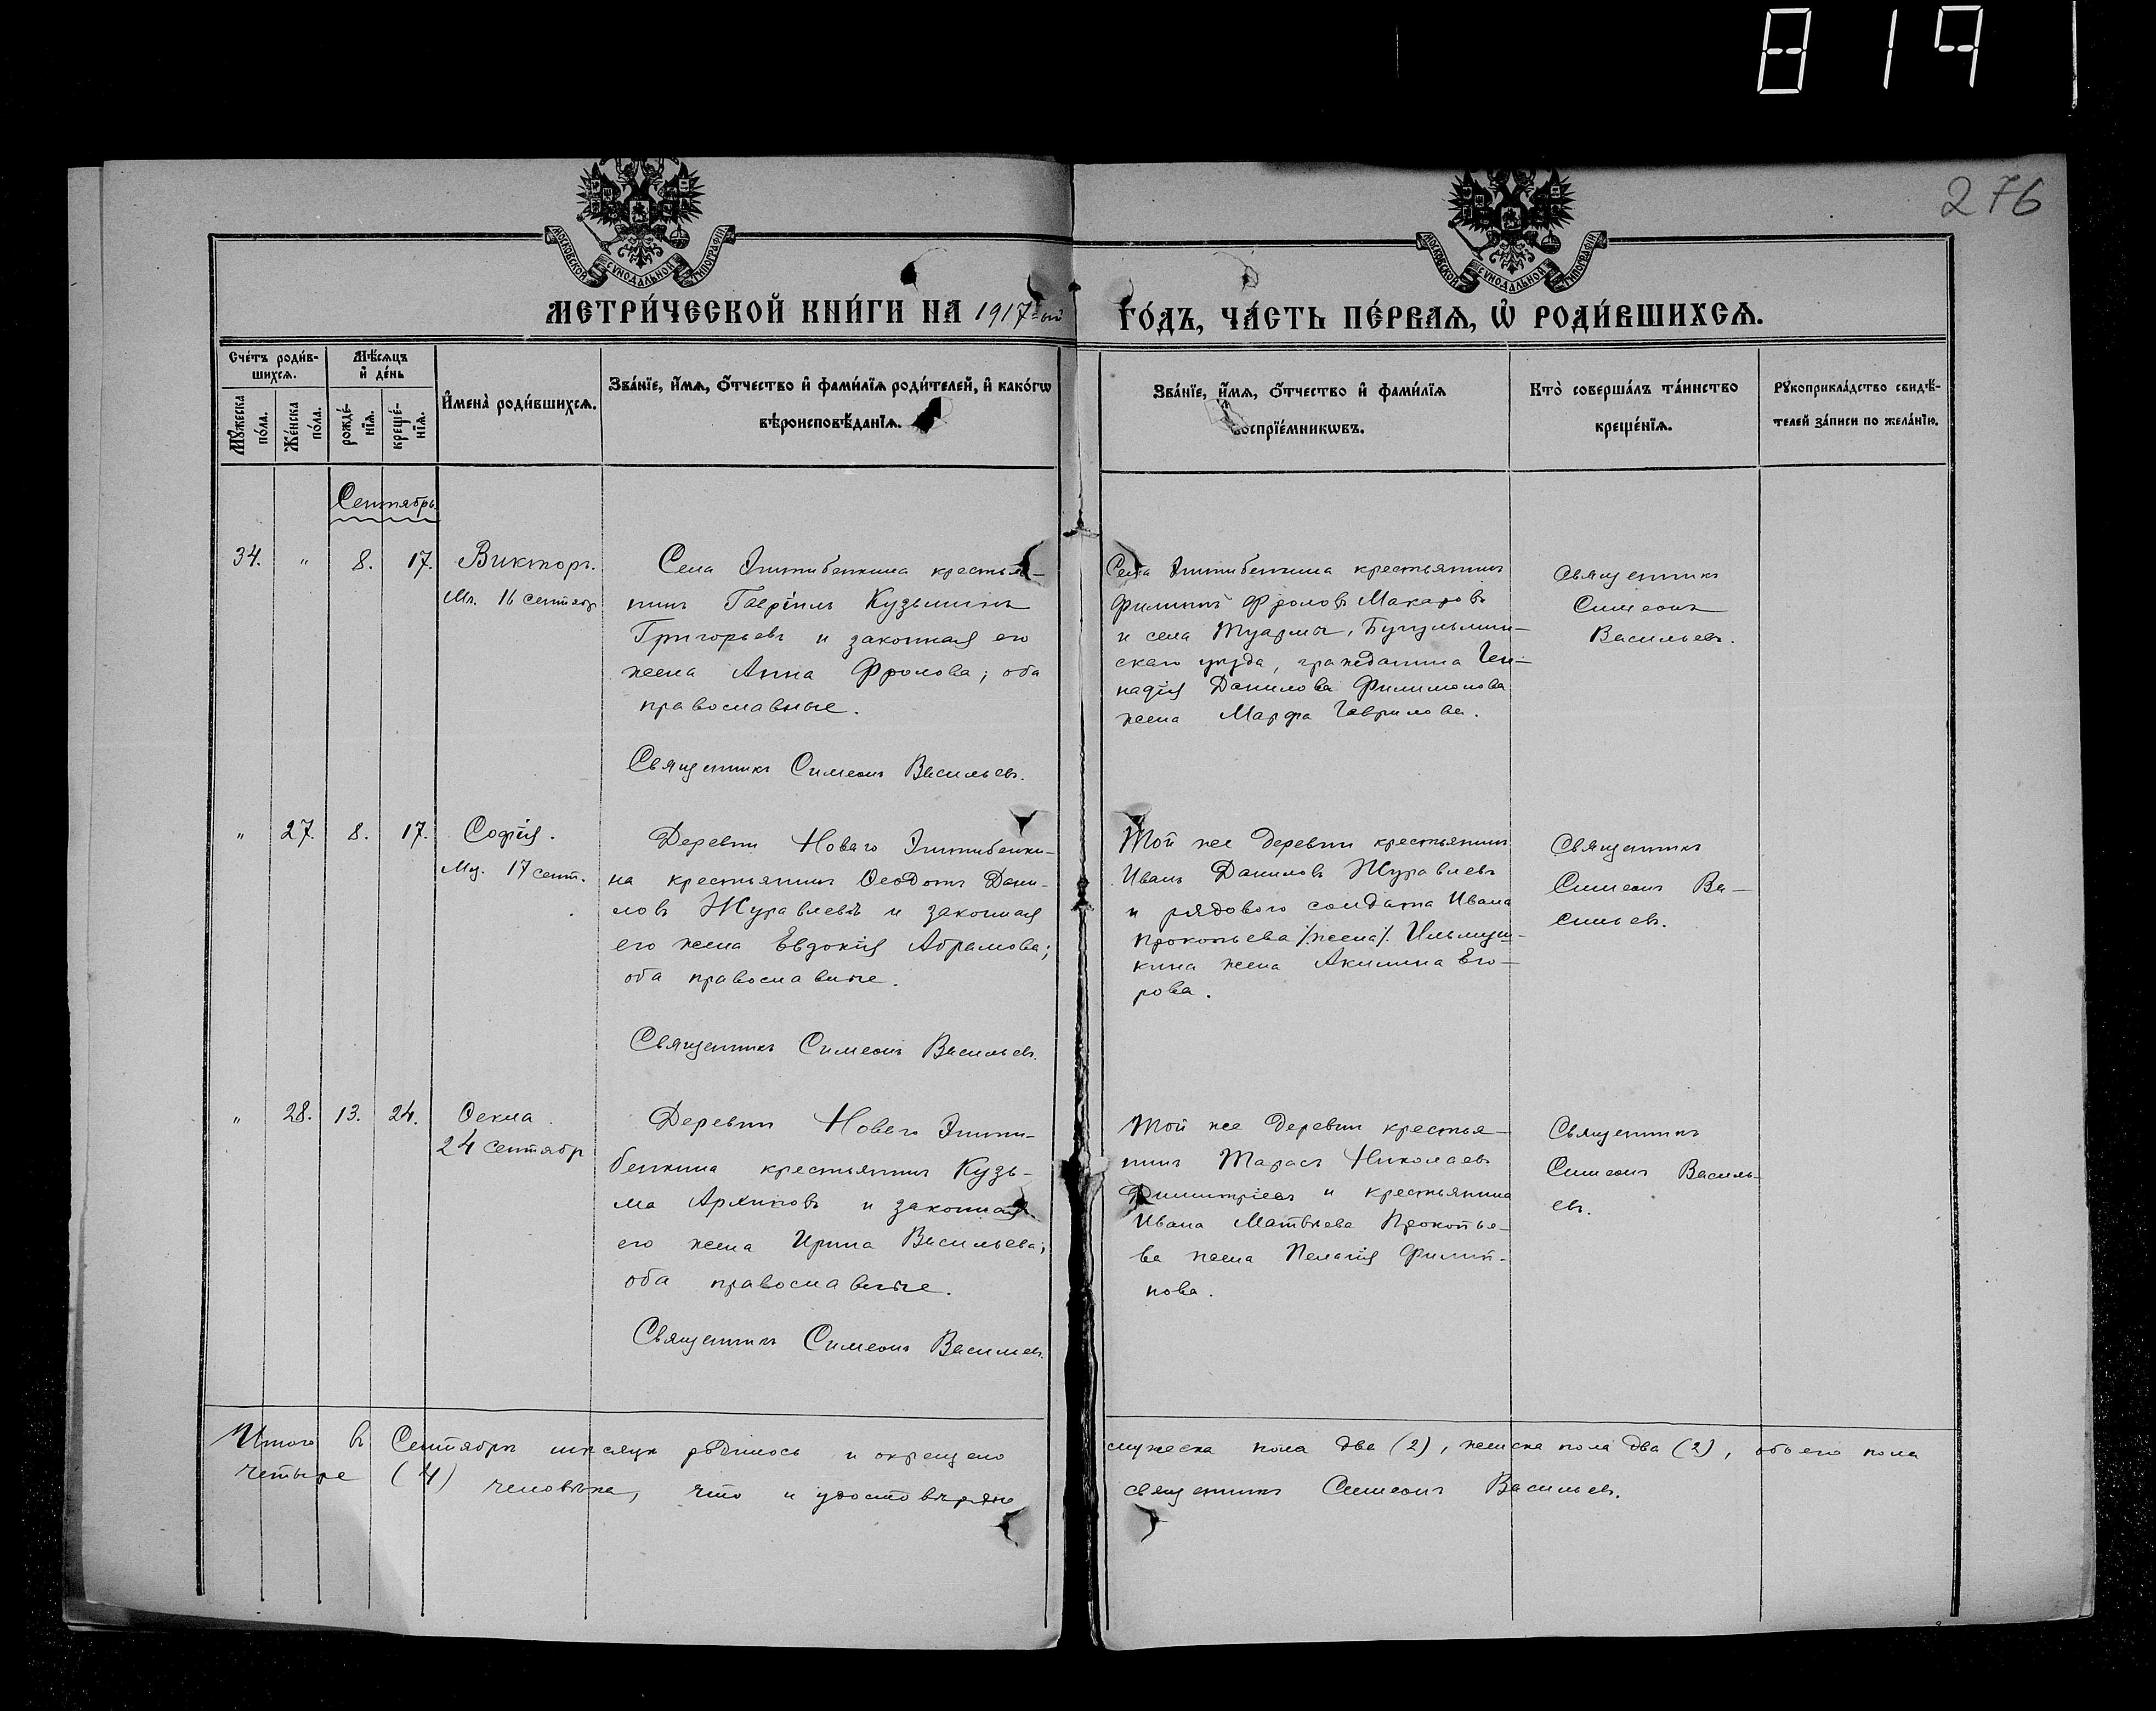 819
276
МОСКОВСКОЙ СУНОДАЛЬНОЙ ТИПОГРАФІИ
МОСКОВСКОЙ СУНОДАЛЬНОЙ ТИПОГРАФІИ
МЕТРИ́ЧЕСКОЙ КНИ́ГИ НА 1917-ый ГО́ДЪ, ЧА́СТЬ ПЕ́РВАѦ, Ѡ РОДИ́ВШИХСѦ.
Сче́тъ роди́в-
шихсѧ.
Мꙋ́жеска по́ла.
Же́нска по́ла.
Мѣ́сѧцъ и де́нь
рожде́-нїѧ.
креще́-нїѧ.
Имена̀ роди́вшихсѧ.
Зва́нїе, и́мѧ, ѻ́тчество и фами́лїѧ роди́телей, и како́гѡ
вѣроисповѣ́данїѧ.
Зва́нїе, и́мѧ, ѻ́тчество и фами́лїѧ
воспрїе́мникѡвъ.
Кто̀ соверша́лъ та́инство
креще́нїѧ.
Рꙋкоприкла́дство свидѣ́-
телей за́писи по жела́нїю.
Сентябрь
34. " 8. 17. Викторъ.
Мч. 16 сентябр
Села Эштебенкина крестья-
нинъ Гавріилъ Кузьминъ
Григорьевъ и законная его
жена Анна Фролова; оба
православные.
Священникъ Симеонъ Васильевъ.
Села Эштебенкина крестьянинъ
Филиппъ Фроловъ Макаровъ
и села Туармы, Бугульмин-
скаго уѣзда, гражданина Ген-
надія Данилова Филимонова
жена Марфа Гаврилова.
Священникъ
Симеонъ
Васильевъ.
" 27. 8. 17. Софія.
Мц. 17 сент.
Деревни Новаго Эштебенки-
на крестьянинъ Ѳеодотъ Дани-
ловъ Журавлевъ и законная
его жена Евдокія Абрамова;
оба православные.
Священникъ Симеонъ Васильевъ.
Той же деревни крестьянинъ
Иванъ Даниловъ Журавлевъ
и рядового солдата Ивана
Прокопьева /:жена/: Ильмуш-
кина жена Акилина Его-
рова.
Священникъ
Симеонъ Ва-
сильевъ.
" 28. 13. 24. Ѳекла
24 сентябр
Деревни Новаго Эште-
бенкина крестьянинъ Кузь-
ма Архиповъ и законная
его жена Ирина Васильева;
оба православные.
Священникъ Симеонъ Васильевъ.
Той же деревни крестья-
нинъ Тарасъ Николаевъ
Димитріевъ и крестьянина
Ивана Матвѣева Прокопье-
ва жена Пелагія Филип-
пова.
Священникъ
Симеонъ Василь-
евъ.
Итого въ Сентябрѣ мѣсяцѣ родилось и окрещено мужеска пола два (2), женска пола два (2), обоего пола
четыре (4) человѣка, что и удостовѣряю священникъ Симеонъ Васильевъ.